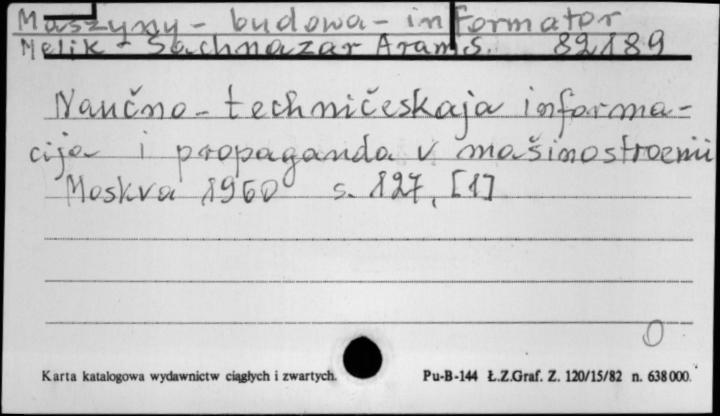 Maszyny - budowa - informator
Melik - Šachnazar Aram S. 82189
Naučno - techničeskaja informa-
cija i propaganda v mašinostroenii
Moskva 1960 s. 127, [1]
0
Karta katalogowa wydawnictw ciągłych i zwartych. Pu-B-144 Ł.Z.Graf. Z. 120/15/82 n. 638000.